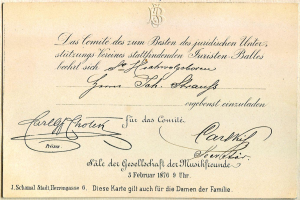 Das Comité des zum Besten des juridischen Unter-
stützungs Vereines stattfindenden Juristen-Balles
beehrt sich Sr Hochwohlgeboren
Herrn Joh. Strauss
ergebenst einzuladen
für das Comité.
Präses
Säle der Gesellschaft der Musikfreunde
3 Februar 1870 9 Uhr.
J. Schmal Stadt, Herrengasse 6. Diese Karte gilt auch für die Damen der Familie.